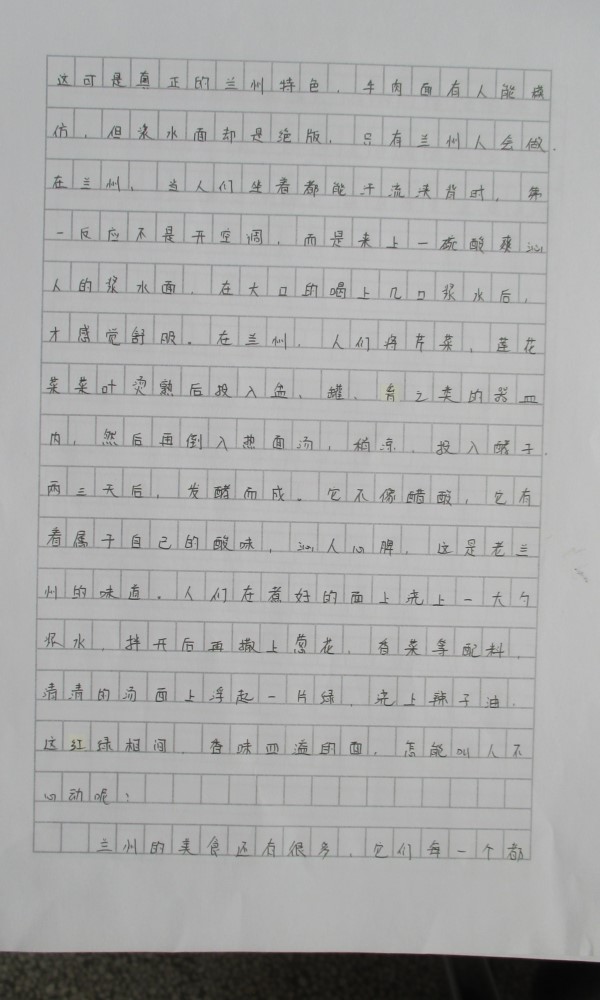 这可是真正的兰州特色，牛肉面有人能模
仿，但浆水面却是绝版，只有兰州人会做。
在兰州，当人们坐着都能汗流浃背时，第
一反应不是开空调，而是来上一碗酸爽沁
人的浆水面。在大口的喝上几口浆水后，
才感觉舒服。在兰州，人们将芹菜，莲花
菜菜叶烫熟后投入盆、罐、之类的器皿
内，然后再倒入热面汤，稍凉，投入酵子，
两三天后，发酵而成。它不像醋酸，它有
着属于自己的酸味，沁人心脾，这是老兰
州的味道。人们在煮好的面上浇上一大勺
浆水，拌开后再撒上葱花，香菜等配料，
清清的汤面上浮起一片绿，浇上辣子油，
这红绿相间，香味四溢的面，怎能叫人不
心动呢？
兰州的美食还有很多，它们每一个都